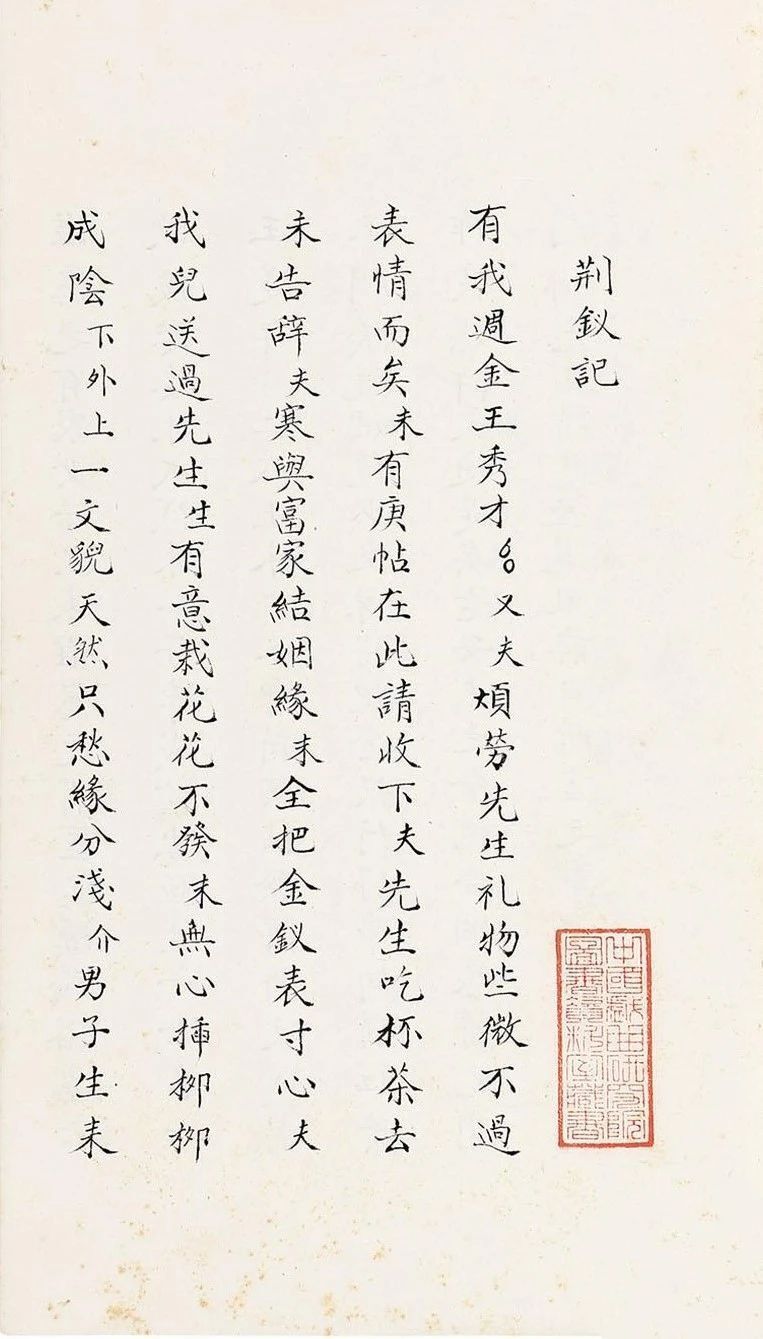 荆釵記
有我週金王秀才又夫煩勞先生礼物些微不過
表情而矣末有庚帖在此請收下夫先生吃杯茶去
末告辞夫寒與富家結姻緣末全把金釵表寸心夫
我兒送過先生生有意栽花花不發末無心揷栁栁
成陰下外上一文貌天然只愁緣分淺介男子生来
中國戲曲研究院
圖書資料室藏書